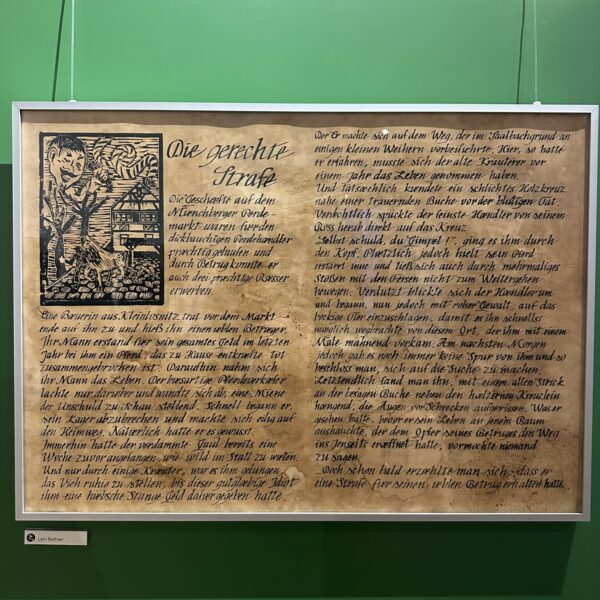 Die gerechte
Strafe
Die Geschaefte auf dem
Muenchberger Pferde-
markt waren fuer den
dickbauchigen Pferdehaendler
praechtig gelaufen und
durch Betrug konnte er
auch drei praechtige Roesser
erwerben.
Eine Baeuerin aus Kleinlosnitz trat vor dem Markt-
ende auf ihn zu und hieß ihn einen ueblen Betrueger.
Ihr Mann erstand fuer sein gesamtes Geld im letzten
Jahr bei ihm ein Pferd, das zu Hause entkraeftet tot
zusammengebrochen ist. Daraufhin nahm sich
ihr Mann das Leben. Der boesartige Pferdeverkaeufer
lachte nur darueber und wandte sich ab, eine Miene
der Unschuld zu Schau stellend. Schnell begann er
sein Lager abzubrechen und machte sich eilig auf
den Heimweg. Natuerlich hatte er es gewusst.
Immerhin hatte der verdammte Gaul bereits eine
Woche zuvor angefangen, wie wild im Stall zu wueten.
Und nur durch einige Kraeuter, war es ihm gelungen,
das Vieh ruhig zu stellen, bis dieser gutglaeubige Idiot
ihm eine huebsche Stange Geld dafuer gegeben hatte.
Der Er machte sich auf dem Weg, der im Saalbachgrund an
einigen kleinen Weihern vorbeifuehrte. Hier, so hatte
er erfahren, musste sich der alte Kraeuterer vor
einem Jahr das Leben genommen haben.
Und tatsaechlich kuendete ein schlichtes Holzkreuz
nahe einer trauernden Buche vor der blutigen Tat.
Veraechtlich spuckte der feinste Haendler von seinem
Ross herab direkt auf das Kreuz.
"Selbst schuld, du Gimpel!", ging es ihm durch
den Kopf. Ploetzlich jedoch hielt sein Pferd
erstarrt inne und ließ sich auch durch mehrmaliges
Stoßen mit den Fersen nicht zum Weitergehen
bewegen. Verdutzt blickte sich der Haendler um
und begann, nun jedoch mit roher Gewalt, auf das
bockige Tier einzuschlagen, damit es ihn schnellst
moeglich wegbrachte von diesem Ort, der ihm mit einem
Male mahnend vorkam. Am naechsten Morgen
jedoch gab es noch immer keine Spur von ihm und so
beschloss man, sich auf die Suche zu machen.
Letztendlich fand man ihn, mit einem alten Strick
an der besagen Buche neben dem hoelzernen Kreuzlein
haengend, die Augen vor Schrecken aufgerissen. Was er
gesehen hatte, bevor er sein Leben an jenem Baum
aushauchte, der dem Opfer seines Betruges den Weg
ins Jenseits eroeffnet hatte, vermochte niemand
zu sagen.
Doch schon bald erzaehlte man sich, dass er
eine Strafe fuer seinen ueblen Betrug erhalten hatte.